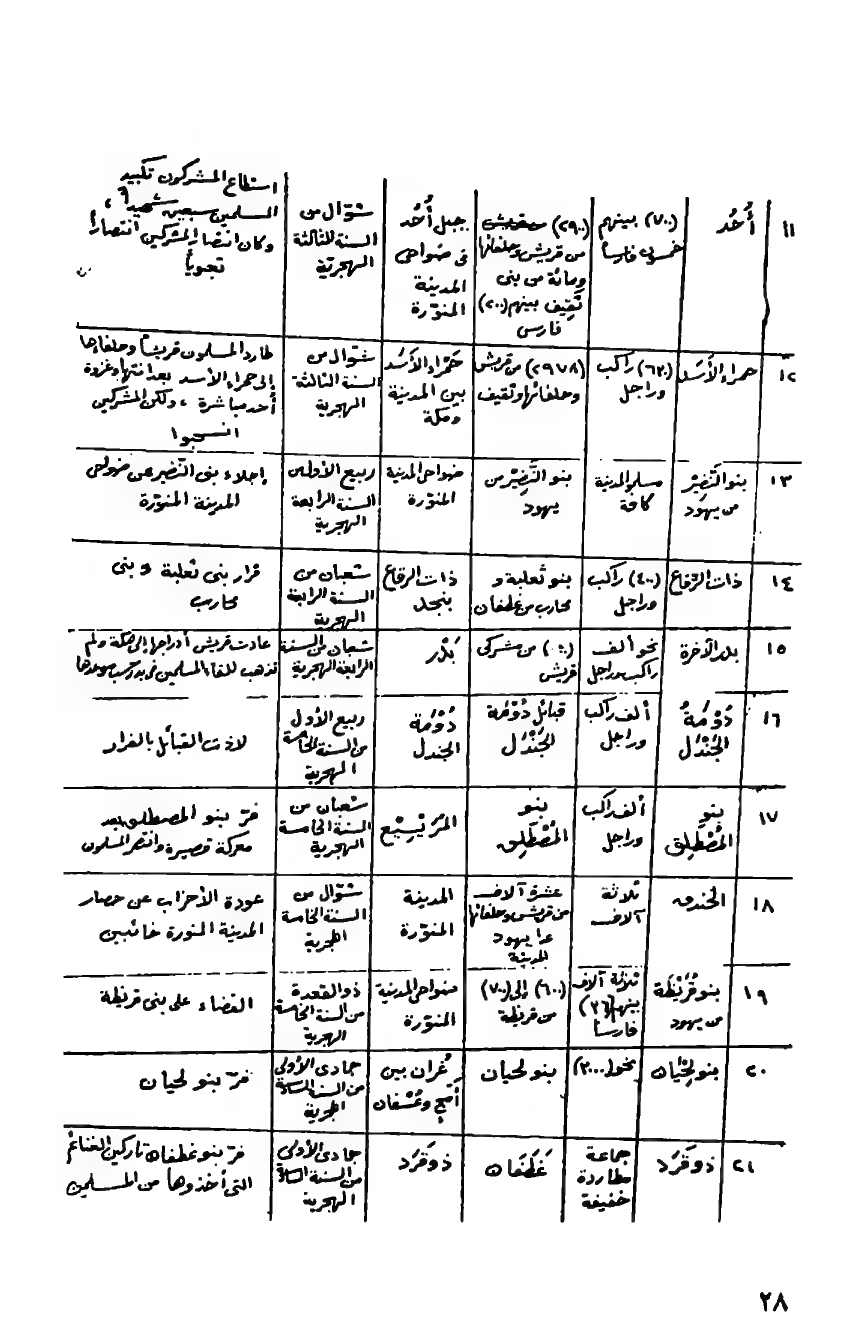 ١١
أُحُد
(٧٠٠) بينهم
خمسون فارساً
(٢٩٠٠)
من قريش وحلفائها
ومائة من بني
ثَقِيف بينهم (٢٠٠)
فارس
جبل أُحُد
في ضواحي
المدينة
المنوّرة
شوّال من
السنة الثالثة
الهجريّة
استطاع المشركون تكبيد
المسلمين سبعين شهيداً،
وكان انتصار المشركين انتصاراً
تعبوياً
١٢
حمراء الأَسَد
(٦٣٠) راكب
وراجل
(٢٩٧٨) من قريش
وحلفائها وثقيف
حَمْراء الأَسَد
بين المدينة
ومكة
شوّال من
السنة الثالثة
الهجرية
طارد المسلمون قريشاً وحلفاءها
إلى حمراء الأسد بعد انتهاء غزوة
أُحد مباشرة، ولكن المشركين
انسحبوا
١٣
بنو النَّضِيْر
من يهود
مسلمو المدينة
كافة
بنو النَّضِيْر من
يهود
ضواحي المدينة
المنوّرة
ربيع الأول من
السنة الرابعة
الهجرية
إجلاء بني النَّضير عن ضواحي
المدينة المنوّرة
١٤
ذات الرِّقاع
(٤٠٠) راكب
وراجل
بنو ثعلبة و
محارب من غطفان
ذات الرقاع
بنجد
شعبان من
السنة الرابعة
الهجرية
فرار بني ثعلبة وبني
محارب
١٥
بدر الآخرة
نحو ألف
راكب وراجل
من مشركي
قريش
بَدْر
شعبان من السنة
الرابعة الهجرية
عادت قريش أدراجها إلى مكة ولم
تذهب للقاء المسلمين في بدر حسب موعدها
١٦
دُوْمَةُ
الجَنْدَل
ألف راكب
وراجل
قبائل دُوْمَة
الجَنْدَل
دُوْمَة
الجندل
ربيع الأول
من السنة الخامسة
الهجرية
لاذت القبائل بالفرار
١٧
بنو
المُصْطَلِق
ألف راكب
وراجل
بنو
المُصْطَلِق
المُرَيْسِيْع
شعبان من
السنة الخامسة
الهجرية
فرّ بنو المصطلق بعد
معركة قصيرة وانتصر المسلمون
١٨
الخندق
ثلاثة
آلاف
عشرة آلاف
من قريش وحلفائها
عدا يهود
المدينة
المدينة
المنوّرة
شوّال من
السنة الخامسة
الهجرية
عودة الأحزاب عن حصار
المدينة المنورة خائبين
١٩
بنو قُرَيْظَة
من يهود
ثلاثة آلاف
بينهم (٣٦)
فارساً
(٦٠٠) إلى (٧٠٠)
من قريظة
ضواحي المدينة
المنوّرة
ذو القعدة
من السنة الخامسة
الهجرية
القضاء على بني قريظة
٢٠
بنو لِحْيَان
نحو (٣٠٠٠)
بنو لحيان
غُران بين
أَمَج وعُسْفان
جمادى الأولى
من السنة السادسة
الهجرية
فرّ بنو لحيان
٢١
ذو قَرَد
جماعة
مطاردة
خفيفة
غَطَفَان
ذو قَرَد
جمادى الأولى
من السنة السادسة
الهجرية
فرّ بنو غطفان تاركين الغنائم
التي أخذوها من المسلمين
٢٨